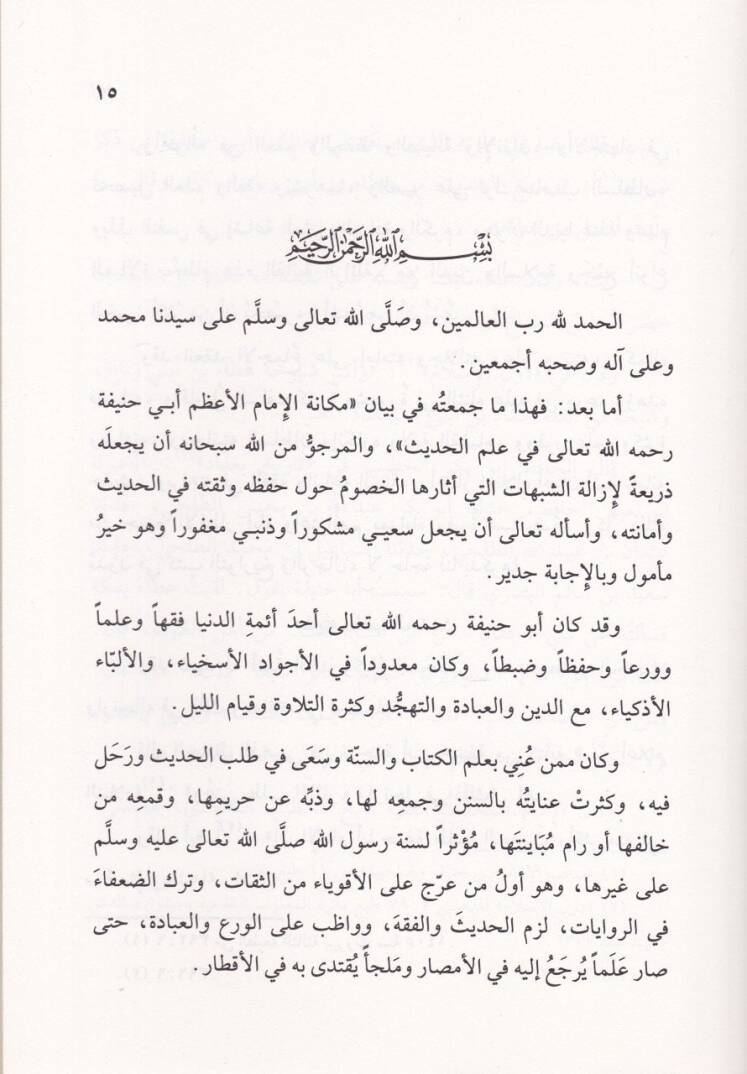 ١٥
بِسْمِ اللهِ الرَّحْمٰنِ الرَّحِيمِ
الحمد لله رب العالمين، وصَلَّى الله تعالى وسلَّم على سيدنا محمد
وعلى آله وصحبه أجمعين.
أما بعد: فهذا ما جمعتُه في بيان «مكانة الإمام الأعظم أبي حنيفة
رحمه الله تعالى في علم الحديث»، والمرجوُّ من الله سبحانه أن يجعلَه
ذريعةً لإزالة الشبهات التي أثارها الخصومُ حول حفظه وثقته في الحديث
وأمانته، وأسأله تعالى أن يجعل سعيي مشكوراً وذنبي مغفوراً وهو خيرُ
مأمول وبالإجابة جدير.
وقد كان أبو حنيفة رحمه الله تعالى أحدَ أئمةِ الدنيا فقهاً وعلماً
وورعاً وحفظاً وضبطاً، وكان معدوداً في الأجواد الأسخياء، والألبّاء
الأذكياء، مع الدين والعبادة والتهجُّد وكثرة التلاوة وقيام الليل.
وكان ممن عُنِي بعلم الكتاب والسنّة وسَعَى في طلب الحديث ورَحَل
فيه، وكثرتْ عنايتُه بالسنن وجمعِه لها، وذبِّه عن حريمِها، وقمعِه من
خالفها أو رام مُبَاينتَها، مُؤْثراً لسنة رسول الله صلَّى الله تعالى عليه وسلَّم
على غيرها، وهو أولُ من عرّج على الأقوياء من الثقات، وترك الضعفاءَ
في الروايات، لزم الحديثَ والفقهَ، وواظب على الورع والعبادة، حتى
صار عَلَماً يُرجَعُ إليه في الأمصار ومَلجأً يُقتدى به في الأقطار.